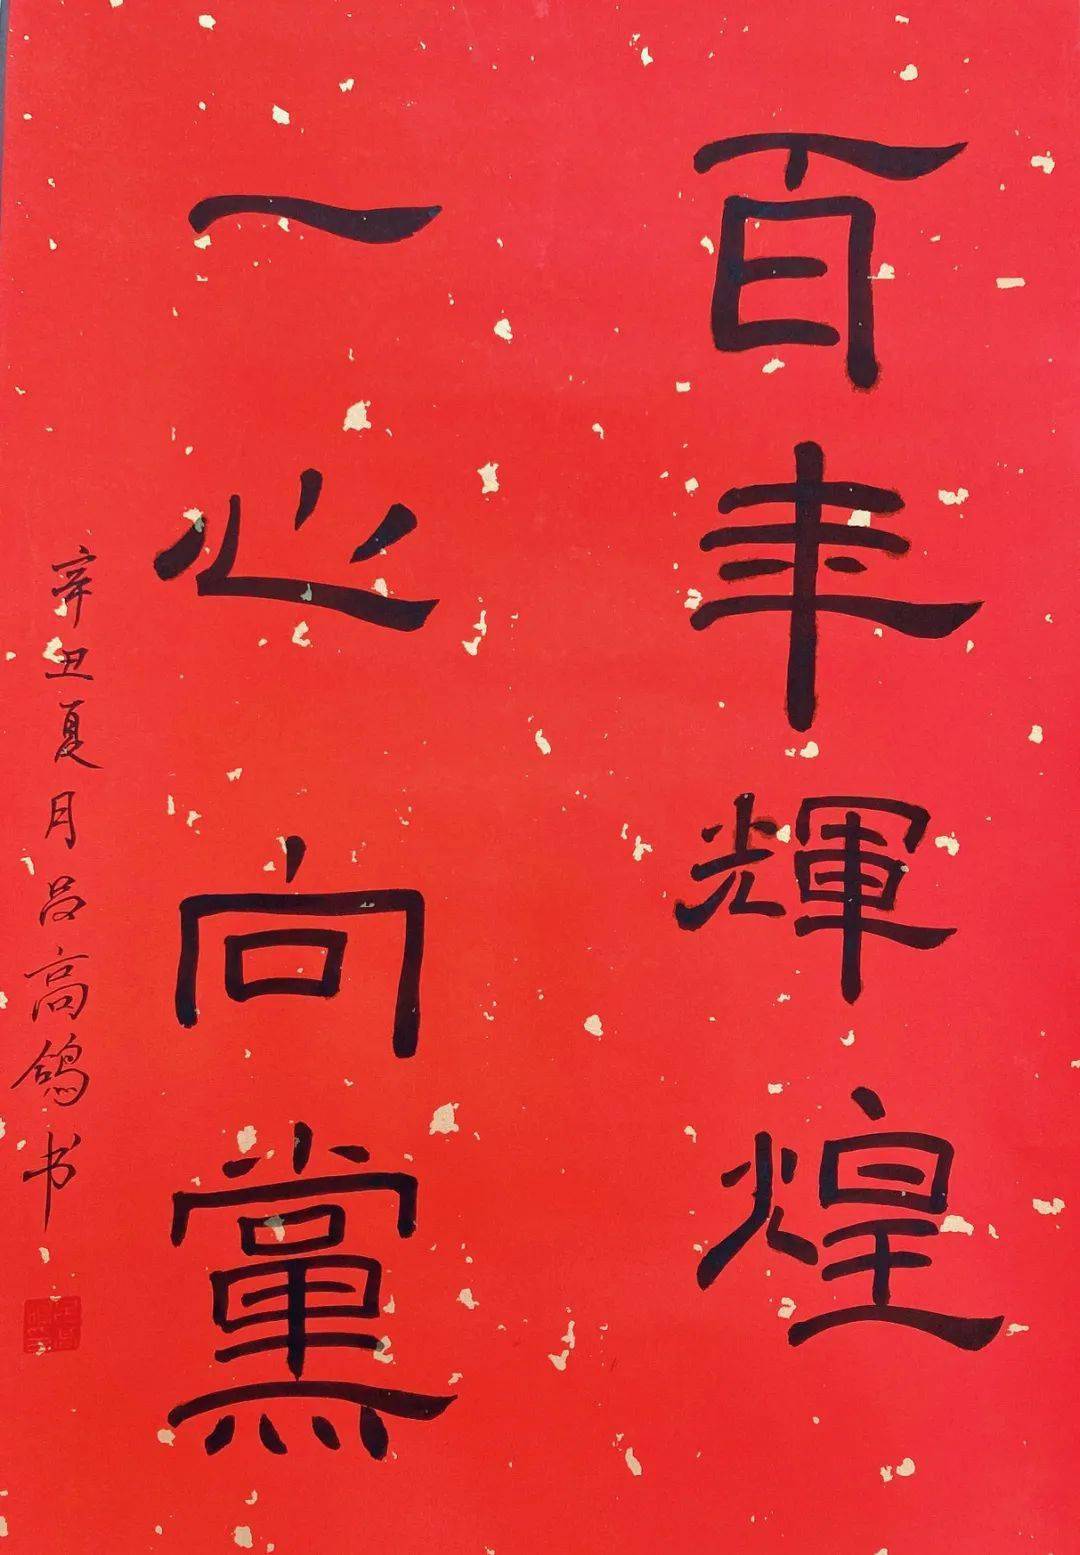 百年輝煌
一心向黨
辛丑夏月吕高鸽书